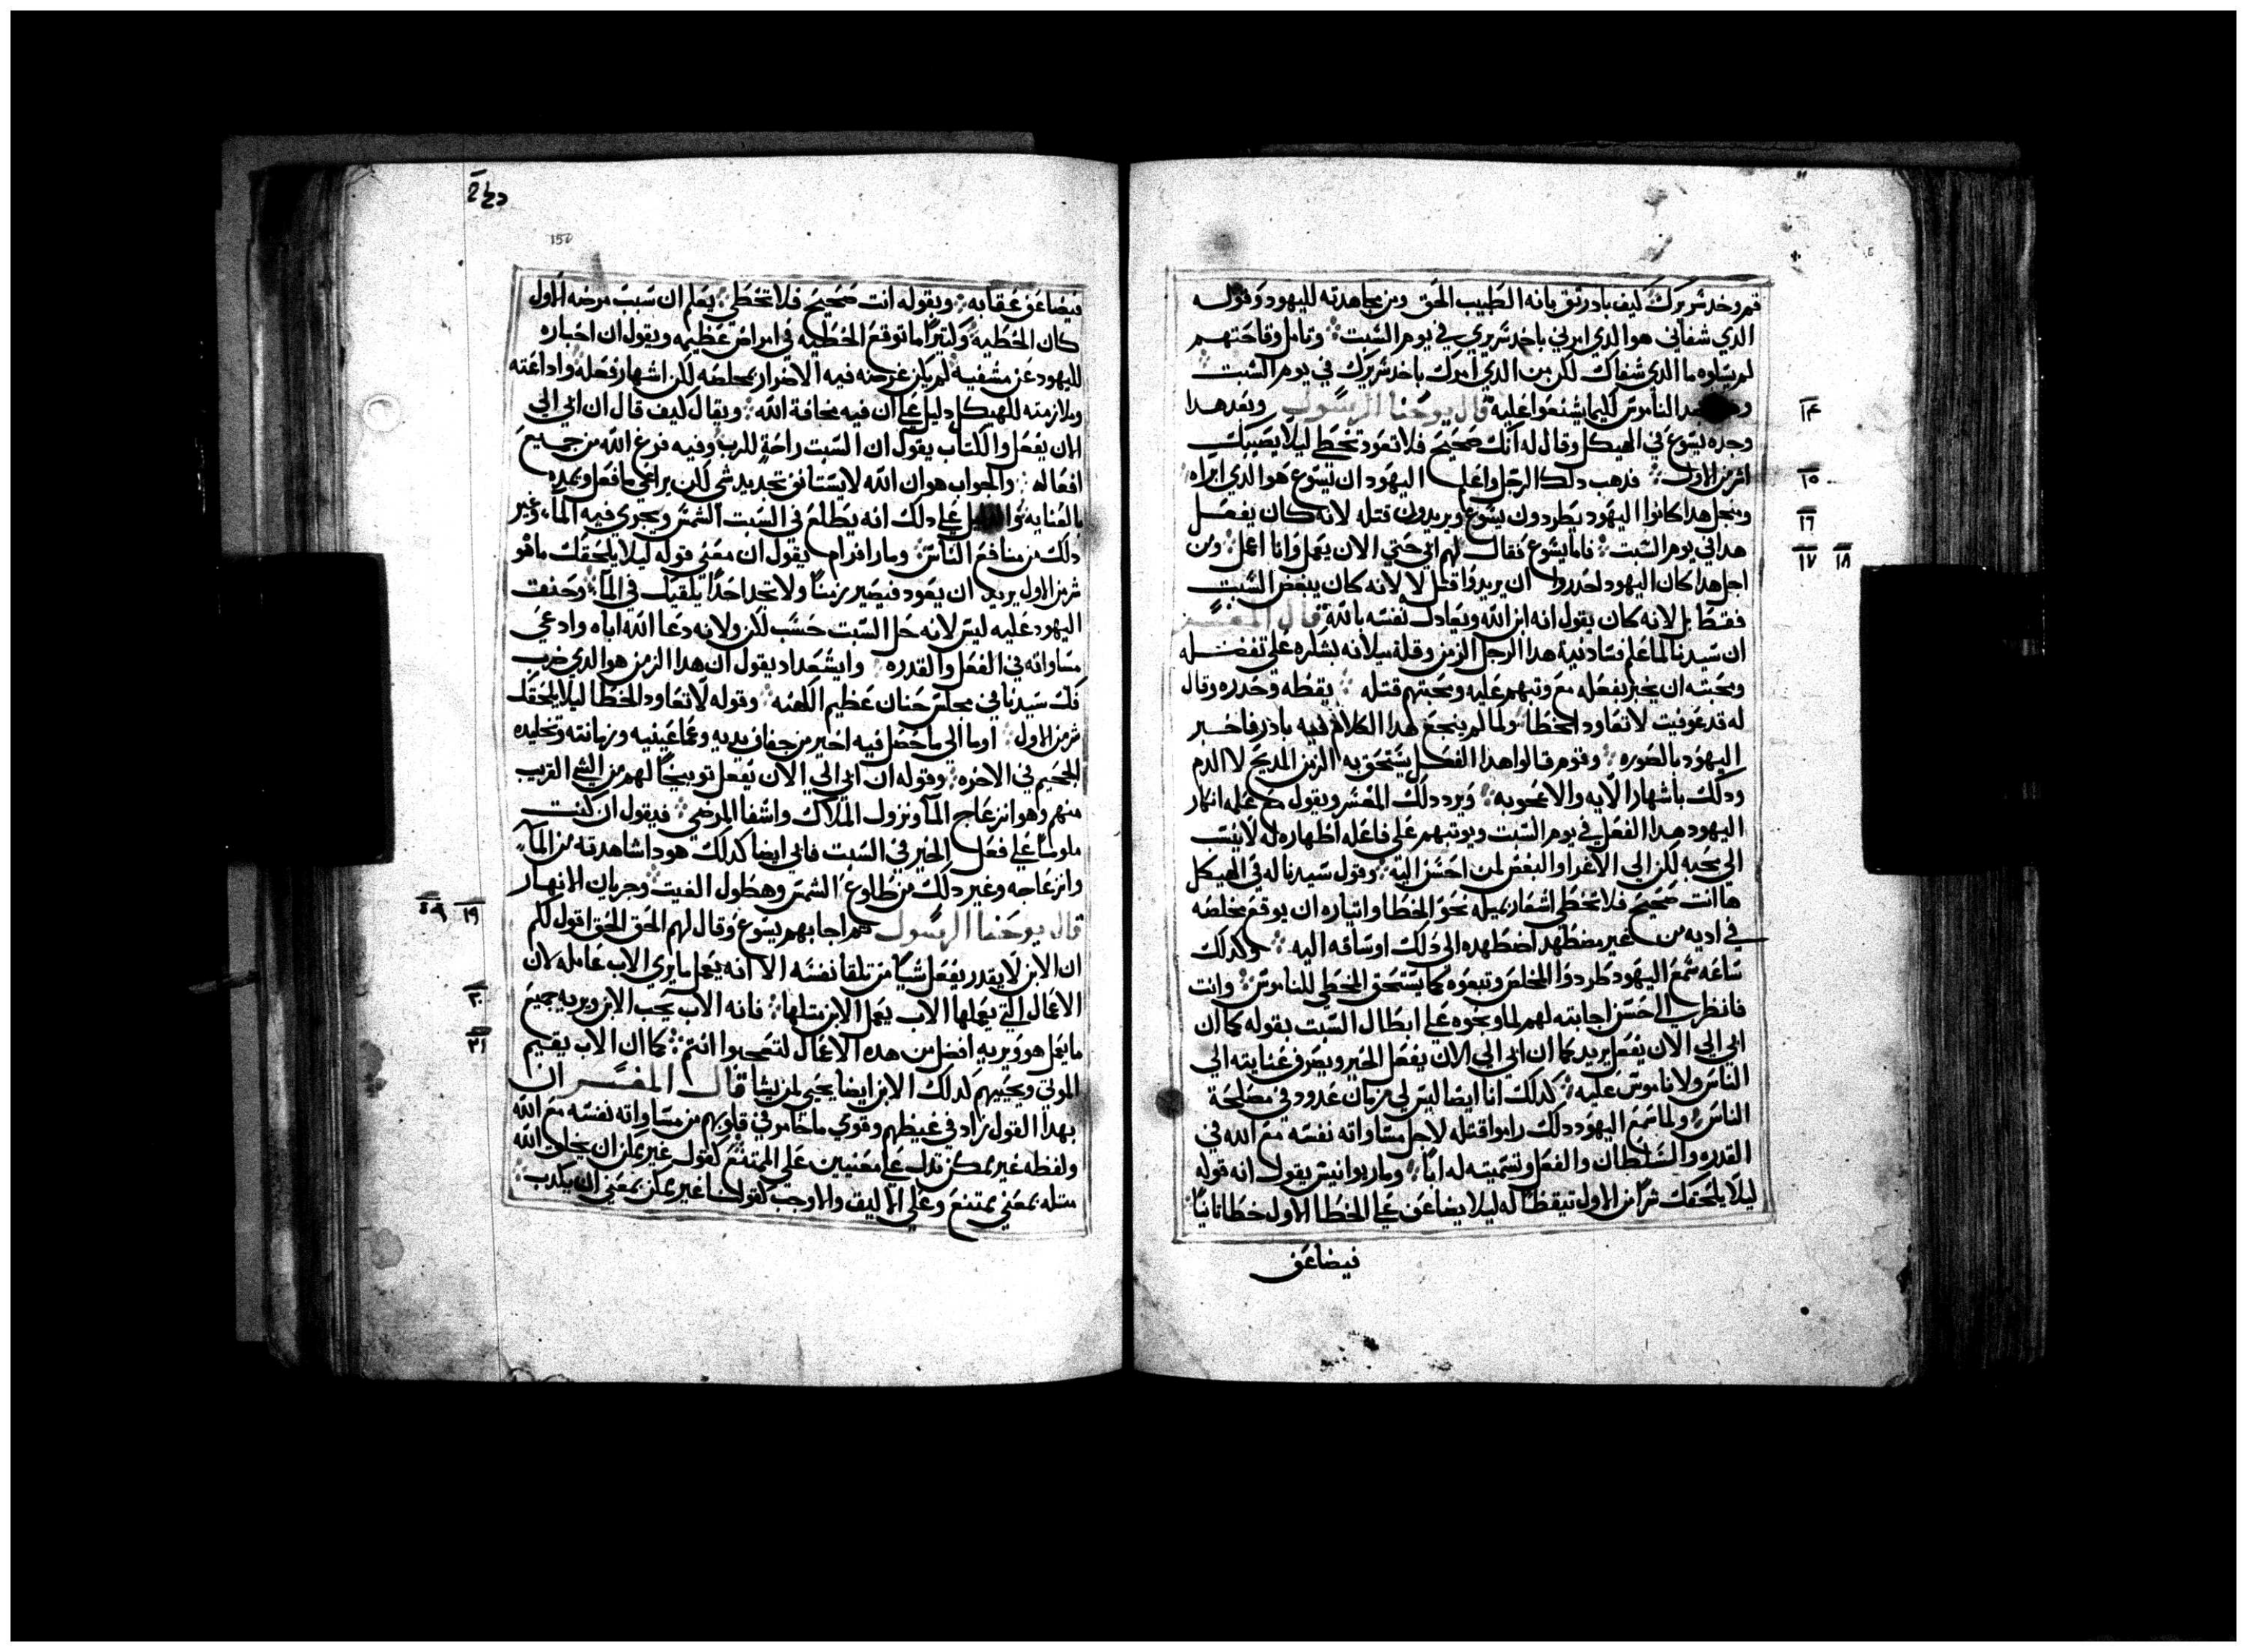 قم وخد سريرك كيف بادر وتق بانه الطبيب الحق ومن مجاهدته لليهود وقوله
الدي شفاني هو الدي امرني باخد سريري في يوم السبت وتامل وقاحتهم
لم يسلوه ما الدي شفاك لكن من الدي امرك باخد سريرك في يوم السبت
الناموس كليما يشنعوا عليه قال يوحنا الرسول وبعد هدا ١٤
وجده يسوع في الهيكل وقال له انك صحيح فلا تعود تخطي ليلا يصيبك
اشر من الاول فدهب دلك الرجل واعلم اليهود ان يسوع هو الدي ابراه ١٥
ومنجل هدا كانوا اليهود يطردون يسوع ويريدون قتله لانه كان يفعل ١٦
هدا في يوم السبت فاما يسوع فقال لهم ابي حتي الان يعمل وانا اعمل ومن ١٧ ١٨
اجل هدا كان اليهود ان يريدوا قتله لا لانه كان ينقض السبت
فقط بل لانه كان يقول انه ابن الله ويعادل نفسه بالله قال المفسر
ان سيدنا لما علم هدا الرجل الزمن وقلة بشكره علي تفضله
ومحبته ان يخبر بفعله مع وتبهم عليه ومحبتهم قتله يقظه وحدره وقال
له قد عوفيت لا تعاود الخطا ولما لم ينجع هدا الكلام فيه بادر فاخبر
اليهود بالصوره وقوم قالوا هدا الفعل يستحق به الزمن المديح لا الدم
ودلك باشهار الايه والاعجوبه ويرد دلك المفسر ويقول مع علمه انكار
اليهود هدا الفعل في يوم السبت وتوتبهم علي فاعله اظهاره له لا ينسب
الي محبه لكن الي الاغرا والبغض لمن احسن اليه وقول سيدنا له في الهيكل
ها انت صحيح فلا تخطي اشعار بميله نحو الخطا وايتاره ان يوقع مخلصه
في اديه من غير مضطهد اضطهده الي دلك اوساقه اليه وكدلك
ساعه سمع اليهود طردوا المخلص وتبعوه كما يستحق المخطي للناموس وانت
فانظر الي حسن اجابته لهم لما وبخوه علي ابطال السبت بقوله كما ان
ابي الي الان يفعل يريد كما ان ابي الي الان يفعل الخير ويصرف عنايته الي
الناس ولا ناموس عليه كدلك انا ايضا ليس لي زمان محدود في مصلحة
الناس ولما سمع اليهود دلك راموا قتله لاجل مساواته نفسه مع الله في
القدره والسلطان والفعل وتسميته له ابا وماريوانيس يقول انه قوله
ليلا يلحقك شرا من الاول تيقظا له ليلا يضاعف علي الخطا الاول خطا تانيا
فيضاعف
150
فيضاعف عقابه وبقوله انت صحيح فلا تخطي يعلم ان سبب مرضه الاول
كان الخطيه وكتيرا ما توقع الخطيه في امراض عظيمه ويقول ان اخباره
لليهود عن مشفيه لم يكن غرضه فيه الاضرار بمخلصه لكن اشهار فعله واداعته
وملازمته للهيكل دليل علي ان فيه مخافة الله ويقال كيف قال ان ابي الي
الان يفعل والكتاب يقول ان السبت راحة للرب وفيه فرغ الله من جميع
افعاله والجواب هو ان الله لا يستانف تجديد شي لكن يراعي ما فعل ويمده
بالعنايه علي دلك انه يطلع في السبت الشمس ويجري فيه الما وغير
دلك من منافع الناس ومار افرام يقول ان معني قوله ليلا يلحقك ما هو
شر من الاول يريد ان يعود فيصير زمنا ولا تجد احدا يلقيك في الما وحنق
اليهود عليه ليس لانه حل السبت حسب لكن ولانه دعا الله اباه وادعي
مساواته في الفعل والقدره وايشعداد يقول ان هدا الزمن هو الدي ضرب
فك سيدنا في مجلس حنان عظيم الكهنه وقوله لا تعاود الخطا ليلا يلحقك
شر من الاول اوما الي ما حصل فيه اخير من جفاف يديه وعما عينيه وزمانته وتخليده
الجحيم في الاخره وقوله ان ابي الي الان يفعل توبيخا لهم من الشي القريب
منهم وهو انزعاج الما ونزول الملاك واشفا المرضي فيقول ان كنت
ملوما علي فعل الخير في السبت فابي ايضا كدلك هودا شاهدته من الما
وانزعاجه وغير دلك من طلوع الشمس وهطول الغيت وجريان الانهار
قال يوحنا الرسول تم اجابهم يسوع وقال لهم الحق الحق اقول لكم ١٩
ان الابن لا يقدر يفعل شيا من تلقا نفسه الا انه يعمل ما يري الاب عامله لان
الاعمال التي يعملها الاب يعمل الابن متلها فانه الاب يحب الابن ويريه جميع ٢٠
ما يعمل هو ويريه افضل من هده الاعمال لتعجبوا انتم كما ان الاب يقيم ٢١
الموتي ويحييهم كدلك الابن ايضا يحيي لمن يشا قال المفسر ان
بهدا القول زاد في غيظهم وقوي ما خامر في قلوبهم من مساواته نفسه مع الله
ولفظه غير ممكن تدل علي معنيين علي الممتنع كقولك غير ممكن ان يخلق الله
متله بمعني يمتنع وعلي الاليق والاوجب كقولنا غير ممكن بمعني ان يكدب